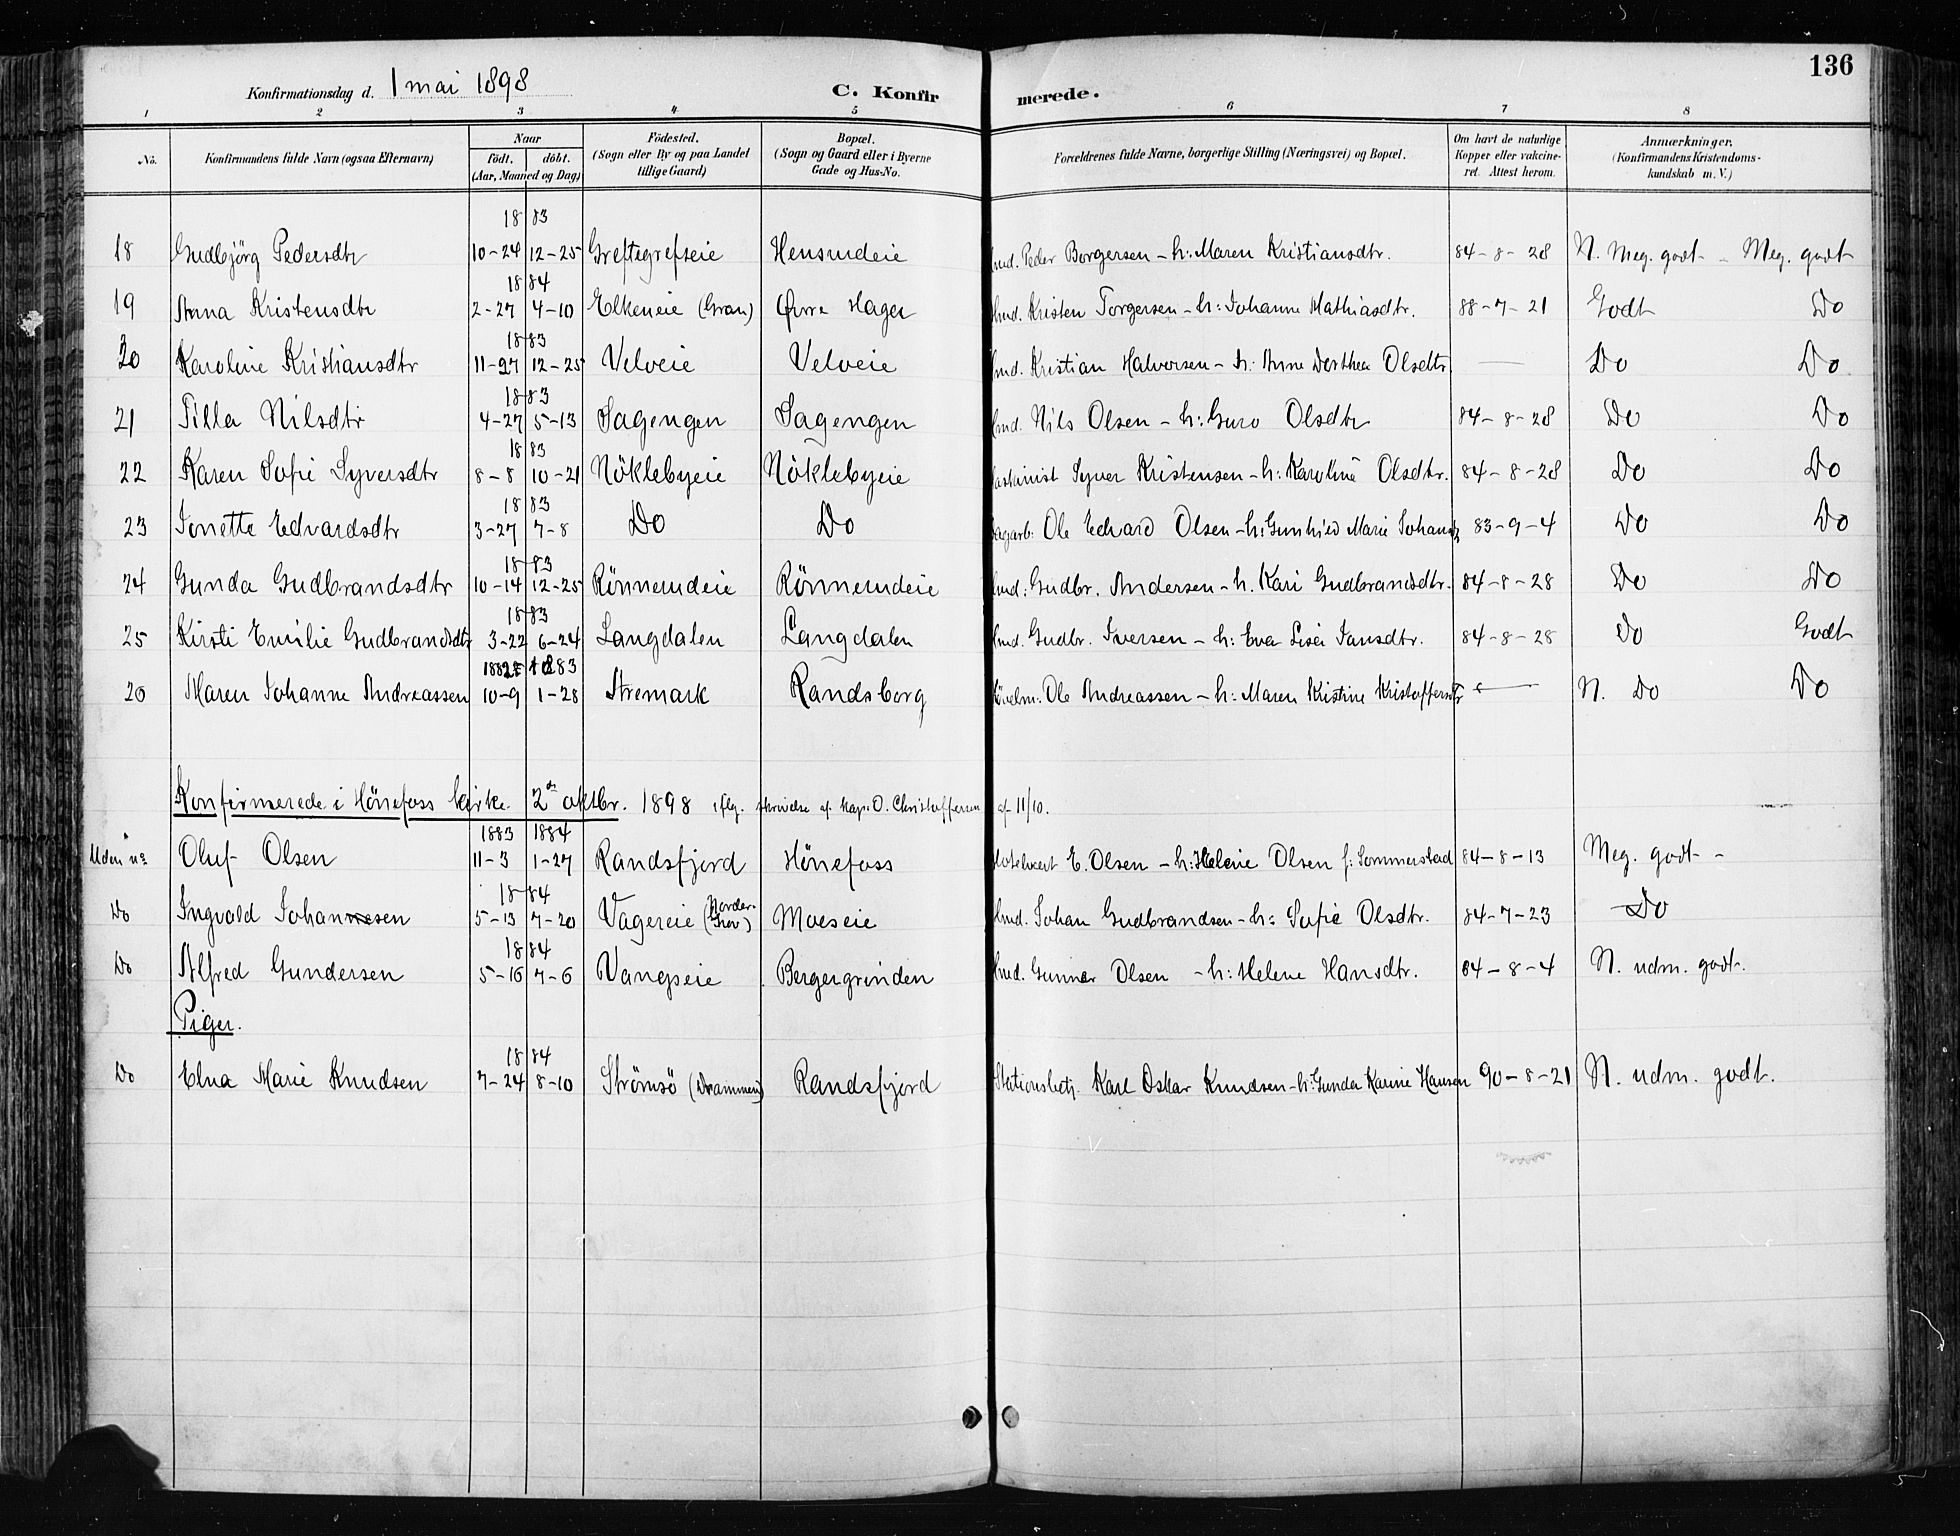 136
Konfirmationsdag d. 1 mai 1898 C. Konfirmerede.
1 2 3 4 5 6 7 8
No. Konfirmandens fulde Navn (ogsaa Efternavn) Naar født. døbt. (Aar, Maaned og Dag) Födested. (Sogn eller By og paa Landet tillige Gaard) Bopæl. (Sogn og Gaard eller i Byerne Gade og Hus-No. Forældrenes fulde Navne, borgerlige Stilling (Næringsvei) og Bopæl. Om havt de naturlige Kopper eller vakcineret. Attest herom. Anmærkninger. (Konfirmandens Kristendomskundskab m. V.)
1883
18 Gudbjörg Pedersdtr 10-24 12-25 Greftegrefseie Hensrudeie Hmd. Peder Borgersen - h: Maren Kristiansdtr. 84-8-28 N. Meg. godt - Meg. godt
1884
19 Anna Kristensdtr 2-27 4-10 Elkeneie (Gran) Øvre Hager Hmd. Kristen Torgersen - h: Johanne Mathiasdtr. 88-7-21 Godt Do
1883
20 Karoline Kristiansdtr 11-27 12-25 Velveie Velveie Hmd. Kristian Halvorsen - h: Anne Dorthea Olsdtr. — Do Do
1883
21 Tilla Nilsdtr 4-27 5-13 Sagengen Sagengen Hmd. Nils Olsen - h: Guro Olsdtr 84-8-28 Do Do
1883
22 Karen Sofie Syversdtr 8-8 10-21 Nöklebyeie Nöklebyeie Maskinist Syver Kristensen - h: Karoline Olsdtr. 84-8-28 Do Do
1883
23 Jonette Edvardsdtr 3-27 7-8 Do Do Dagarb: Ole Edvard Olsen - h: Gunhild Marie Johansd. 83-9-4 Do Do
1883
24 Gunda Gudbrandsdtr 10-14 12-25 Rönnemdeie Rönnemdeie Hmd: Gudbr. Andersen - h. Kari Gudbrandsdtr. 84-8-28 Do Do
1883
25 Kirsti Emilie Gudbrandsdtr 3-22 6-24 Langdalen Langdalen Hmd. Gudbr. Iversen - h: Eva Lise Jansdtr. 84-8-28 Do Godt
1882 1883
20 Maren Johanne Andreassen 10-9 1-28 Stremark Randsborg Ole Andreassen - h: Maren Kristine Kristoffersdtr — N. Do Do
Konfirmerede i Hönefoss kirke. 2den oktbr. 1898 iflg. skrivelse af kap. O. Christoffersen af 11/10.
1883 1884
Uden no Oluf Olsen 11-3 1-27 Randsfjord Hönefoss Hotelvert E. Olsen - h: Helene Olsen f: Sommerstad 84-8-13 Meg. godt -
1884
Do Ingvald Johannesen 5-13 7-20 Vagereie (Norderhov) Moeseie Hmd. Johan Gudbrandsen - h: Sofie Olsdtr. 84-7-23 Do
1884
Do Alfred Gundersen 5-16 7-6 Vangseie Bergergrinden Hmd. Gunner Olsen - h: Helene Hansdtr. 84-8-4 N. udm. godt.
Piger.
1884
Do Elna Marie Knudsen 7-24 8-10 Strömsö (Drammen) Randsfjord Stationsbetj. Karl Oskar Knudsen - h: Gunda Karine Hansen 90-8-21 N. udm. godt.